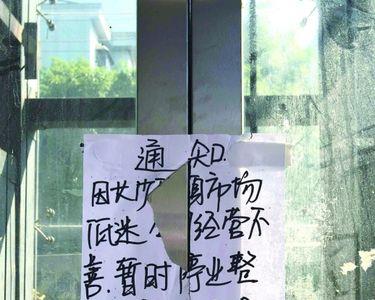 通知
因 市场
低迷 经营不
善.暂时停业整